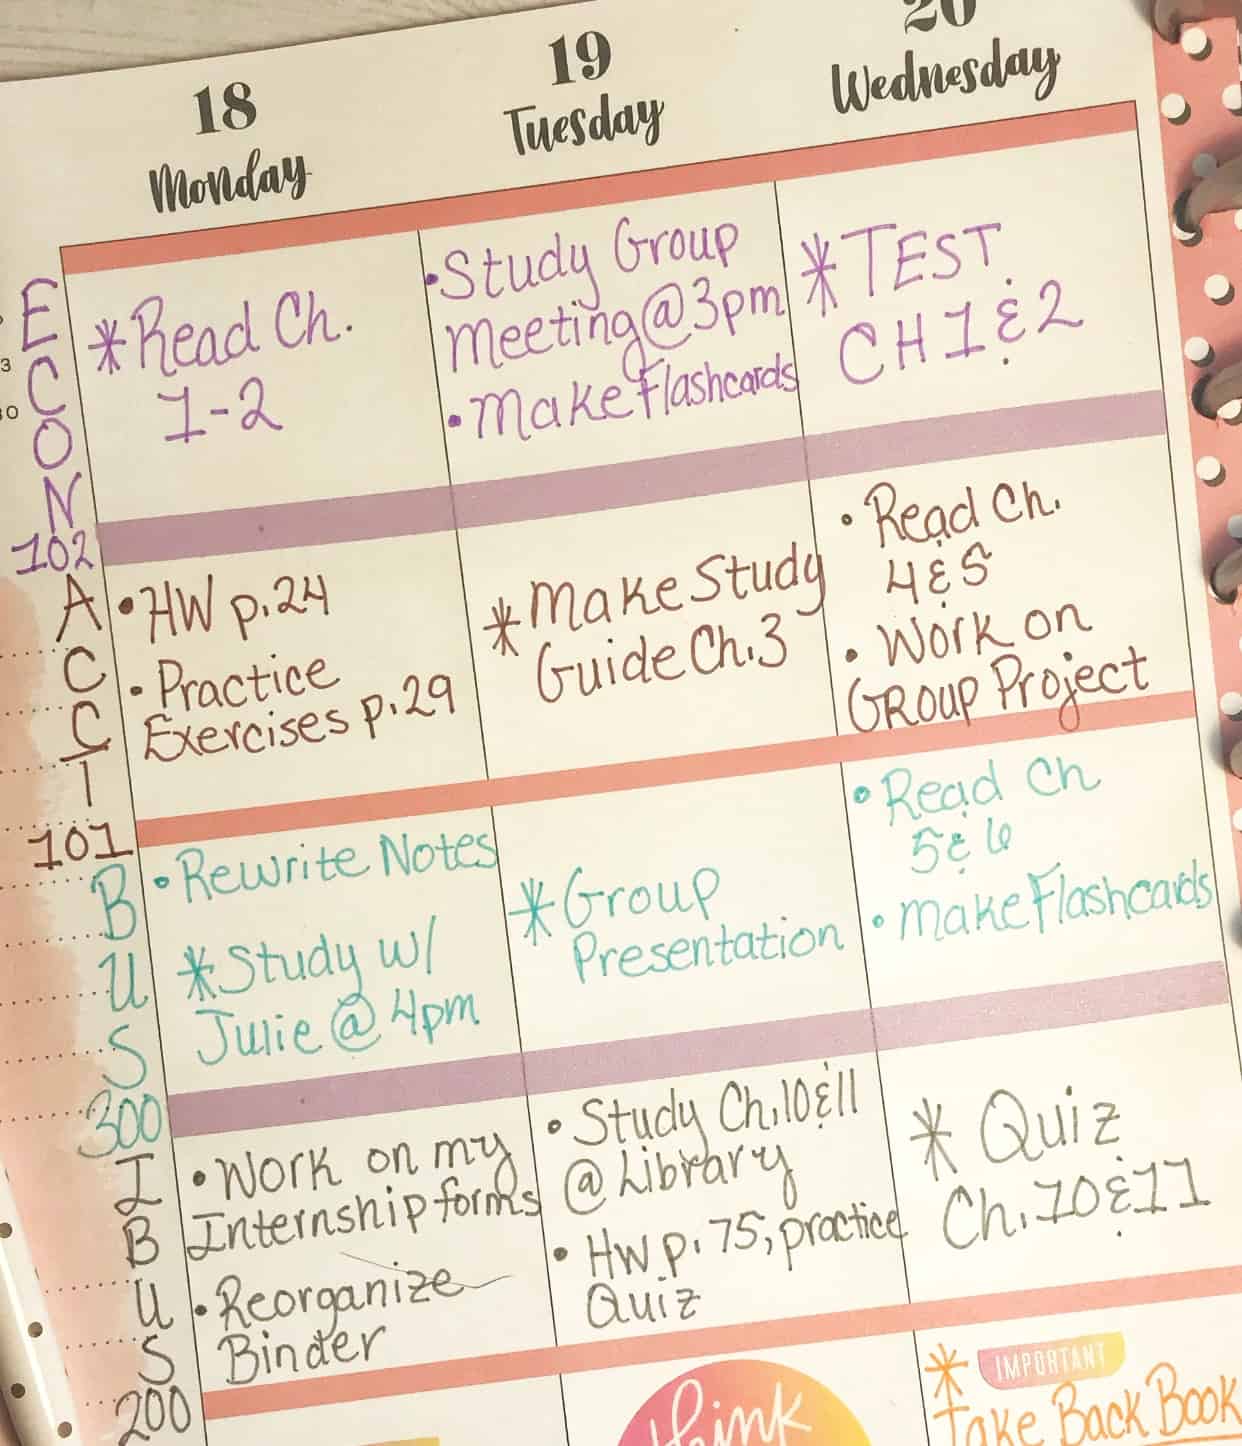 18
Monday
19
Tuesday
20
Wednesday
ECON
102
*Read Ch.
1-2
•Study Group
Meeting@3pm
•Make Flashcards
*TEST
CH 1 & 2
ACCT
101
•HW p.24
•Practice
Exercises p.29
*Make Study
Guide Ch.3
•Read Ch.
4 & 5
•Work on
GROUP Project
BUS
300
•Rewrite Notes
*Study w/
Julie @ 4pm
*Group
Presentation
•Read Ch
5 & 6
•Make Flashcards
IBUS
200
•Work on my
Internship forms
•Reorganize
Binder
•Study Ch.10&11
@ Library
•HW p. 75, practice
Quiz
*Quiz
Ch. 10 & 11
think
*IMPORTANT
Take Back Book